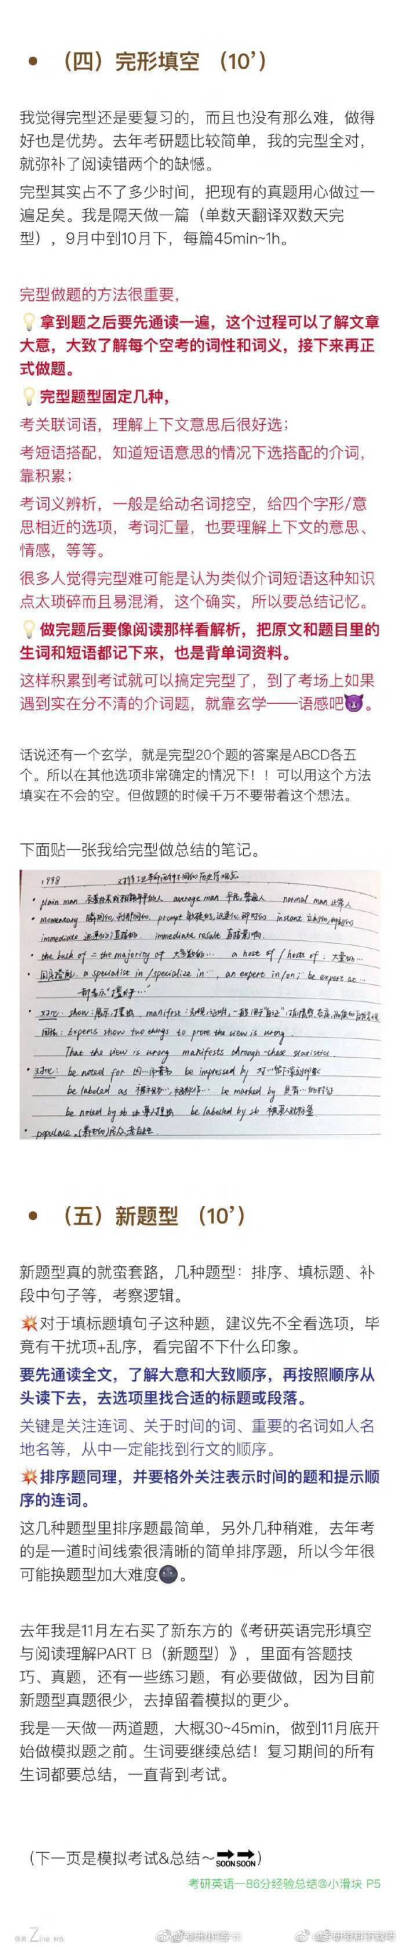 • （四）完形填空 （10’）
我觉得完型还是要复习的，而且也没有那么难，做得
好也是优势。去年考研题比较简单，我的完型全对，
就弥补了阅读错两个的缺憾。
完型其实占不了多少时间，把现有的真题用心做过一
遍足矣。我是隔天做一篇（单数天翻译双数天完
型），9月中到10月下，每篇45min~1h。
完型做题的方法很重要，
💡拿到题之后要先通读一遍，这个过程可以了解文章
大意，大致了解每个空考的词性和词义，接下来再正
式做题。
💡完型题型固定几种，
考关联词语，理解上下文意思后很好选；
考短语搭配，知道短语意思的情况下选搭配的介词，
靠积累；
考词义辨析，一般是给动名词挖空，给四个字形/意
思相近的选项，考词汇量，也要理解上下文的意思、
情感，等等。
很多人觉得完型难可能是认为类似介词短语这种知识
点太琐碎而且易混淆，这个确实，所以要总结记忆。
💡做完题后要像阅读那样看解析，把原文和题目里的
生词和短语都记下来，也是背单词资料。
这样积累到考试就可以搞定完型了，到了考场上如果
遇到实在分不清的介词题，就靠玄学——语感吧😈。
话说还有一个玄学，就是完型20个题的答案是ABCD各五
个。所以在其他选项非常确定的情况下！！可以用这个方法
填实在不会的空。但做题的时候千万不要带着这个想法。
下面贴一张我给完型做总结的笔记。
1998
• plain man average man normal man 正常人
• momentary prompt instant
immediate immediate result 直接影响
• the bulk of = the majority of a host of / hosts of : 大量的
a specialist in / specialize in … , an expert in/on; be expert at …
show manifest
Experts show two things to prove the view is wrong
That the view is wrong manifests through these statistics
be noted for be impressed by
be labeled as be marked by
be noted by sb be labelled by sb
• populace
• （五）新题型 （10’）
新题型真的就蛮套路，几种题型：排序、填标题、补
段中句子等，考察逻辑。
💥对于填标题填句子这种题，建议先不全看选项，毕
竟有干扰项+乱序，看完留不下什么印象。
要先通读全文，了解大意和大致顺序，再按照顺序从
头读下去，去选项里找合适的标题或段落。
关键是关注连词、关于时间的词、重要的名词如人名
地名等，从中一定能找到行文的顺序。
💥排序题同理，并要格外关注表示时间的题和提示顺
序的连词。
这几种题型里排序题最简单，另外几种稍难，去年考
的是一道时间线索很清晰的简单排序题，所以今年很
可能换题型加大难度🌚。
去年我是11月左右买了新东方的《考研英语完形填空
与阅读理解PART B（新题型）》，里面有答题技
巧、真题，还有一些练习题，有必要做做，因为目前
新题型真题很少，去掉留着模拟的更少。
我是一天做一两道题，大概30~45min，做到11月底开
始做模拟题之前。生词要继续总结！复习期间的所有
生词都要总结，一直背到考试。
（下一页是模拟考试&总结～🔜🔜）
考研英语一86分经验总结@小滑块 P5